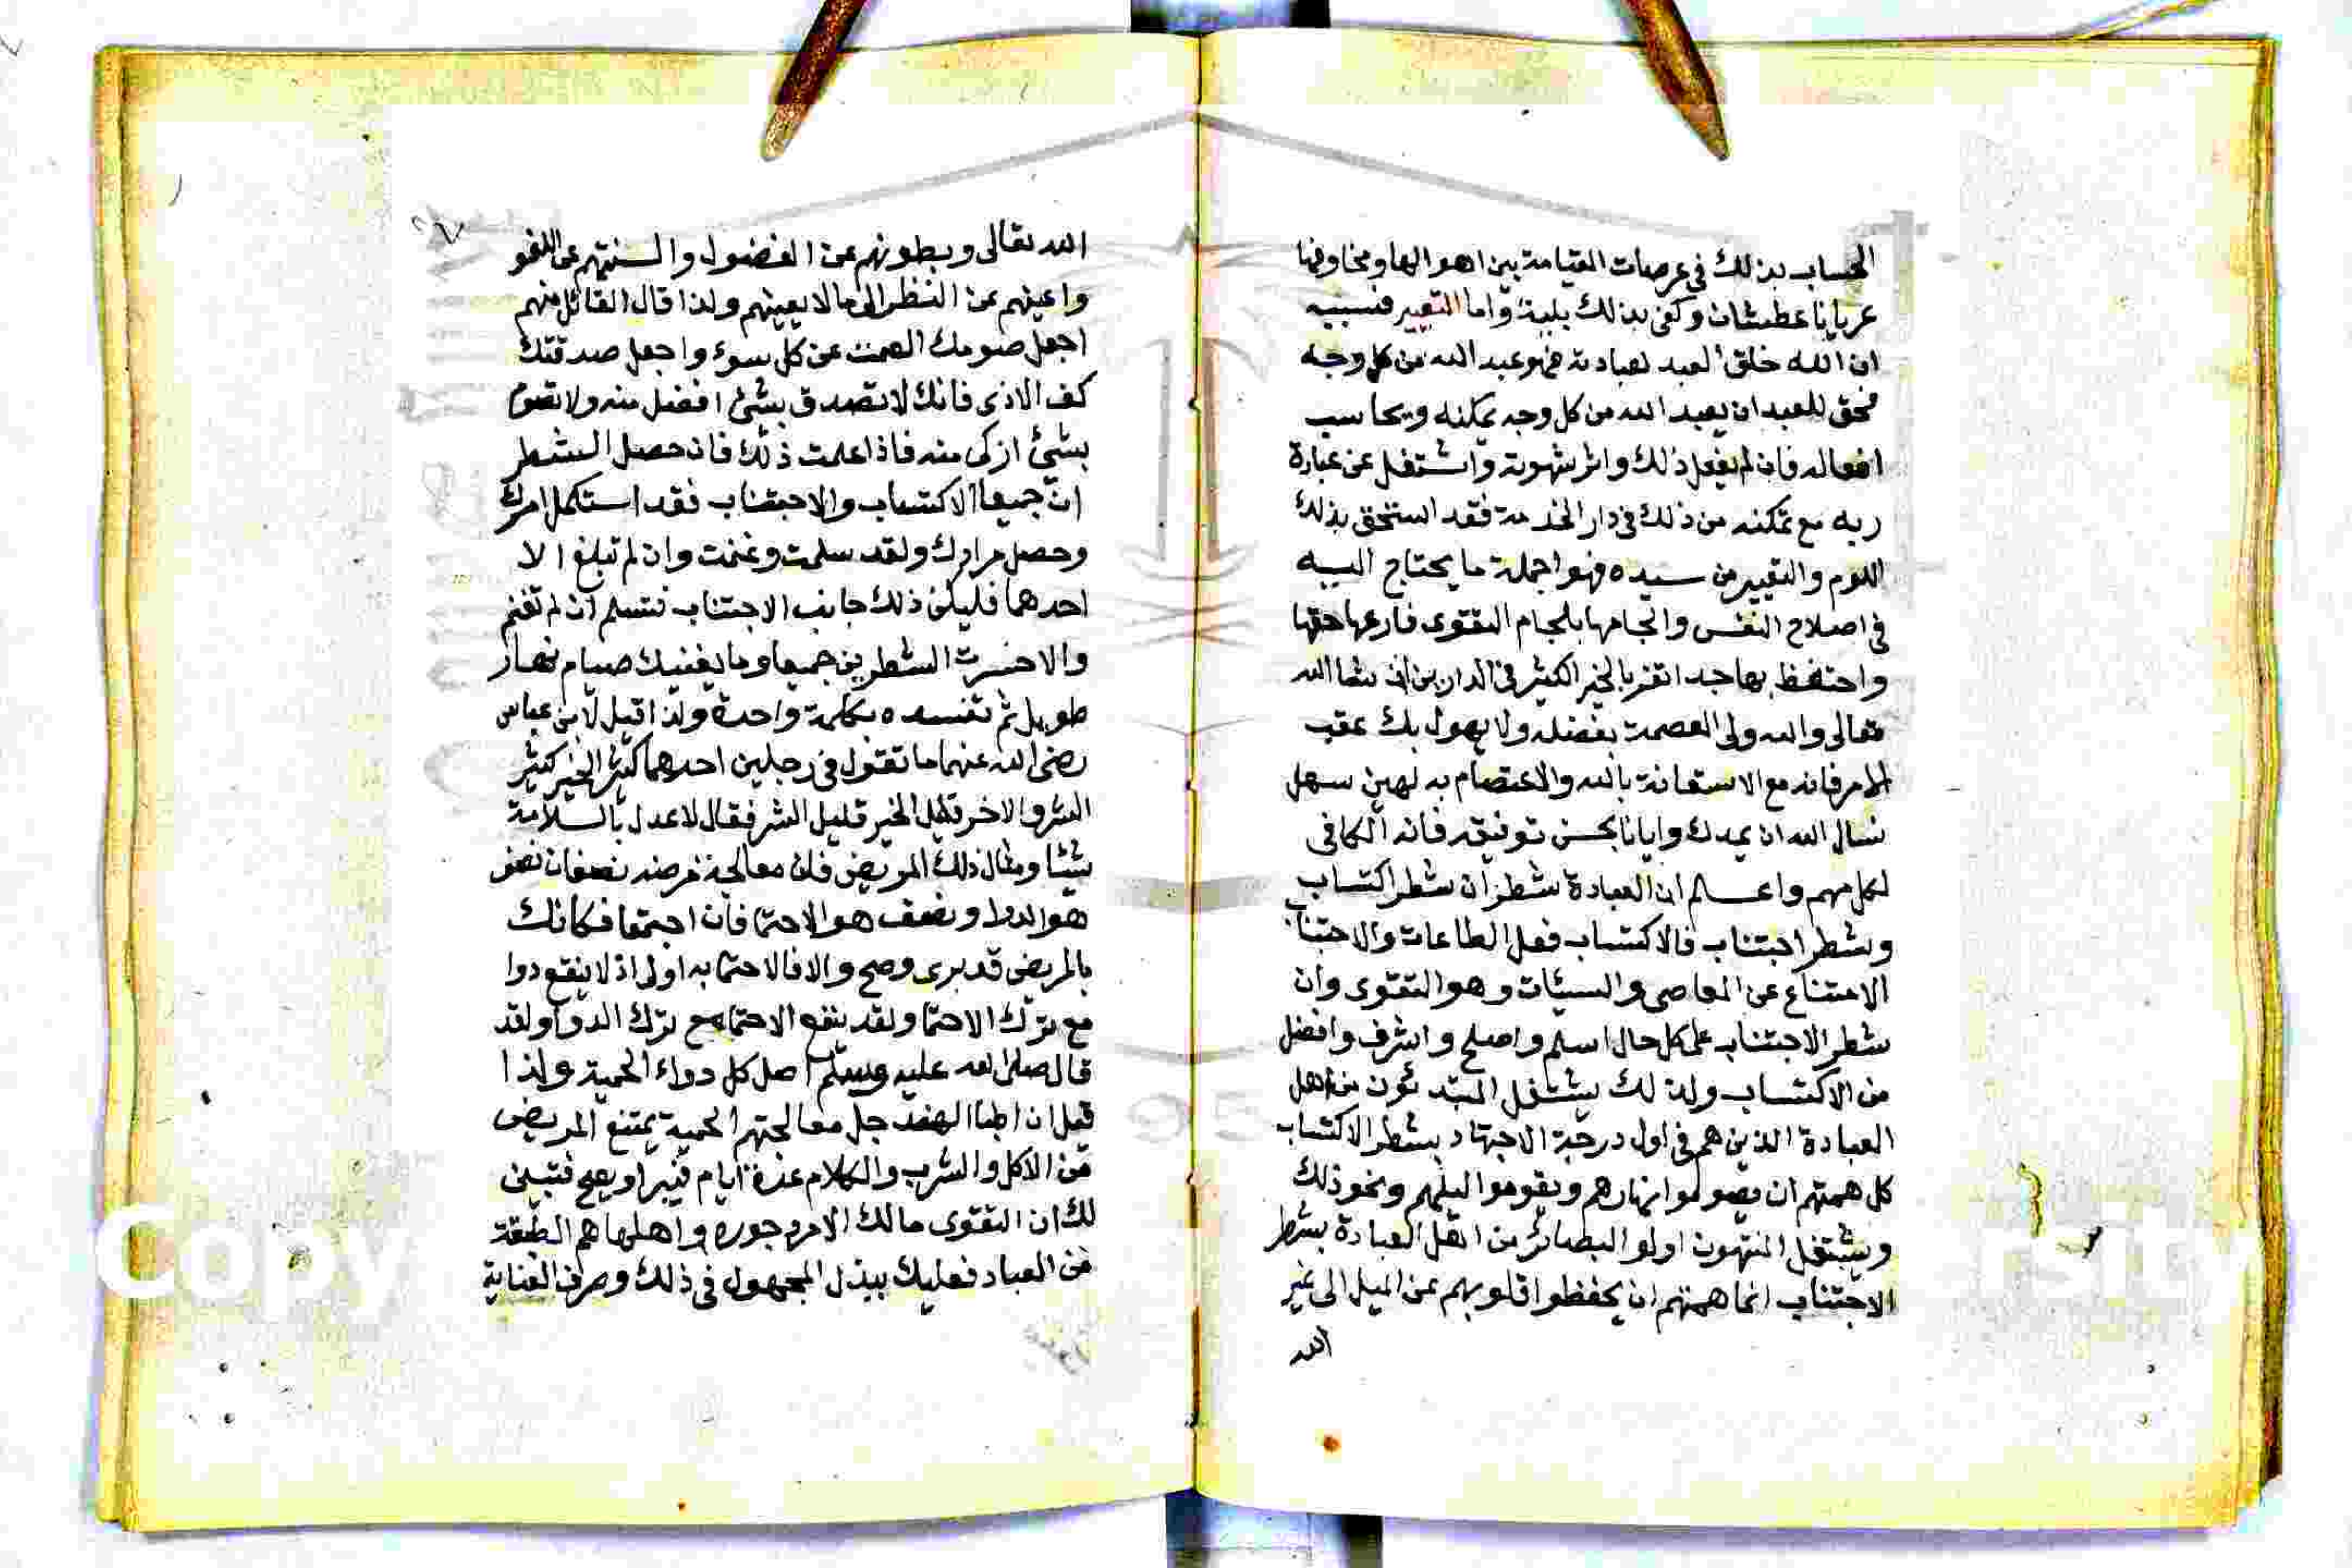 الحساب بذلك في عرصات القيامة بين اهوالها ومخاوفها
عريانا عطشان وكفى بذلك بلية واما التعيير فسببه
ان الله خلق العبد لعبادته فهو عبد الله من كل وجه
فحق للعبد ان يعبد الله من كل وجه يمكنه ويحاسب
افعاله فان لم يفعل ذلك واثر شهوته واشتغل عن عبادة
ربه مع تمكنه من ذلك في دار الخدمة فقد استحق بذلك
اللوم والتعيير من سيده فهوا جملة ما يحتاج اليه
في اصلاح النفس والجامها بلجام التقوى فارعها حقها
واحتفظ بها جدا تفز بالخير الكثير في الدارين ان شا الله
تعالى والله ولى العصمة بفضله ولا يهول بك عقب
الامر فانه مع الاستعانة بالله والاعتصام به لهين سهل
نسال الله ان يمدك وايانا بحسن توفيقه فانه الكافى
لكل مهم واعلم ان العبادة شطران شطر اكتساب
وشطر اجتناب فالاكتساب فعل الطاعات والاجتناب
الامتناع عن المعاصى والسيئات وهو التقوى وان
شطر الاجتناب على كل حال اسلم واصلح واشرف وافضل
من الاكتساب ولذلك يشتغل المبتدئون من اهل
العبادة الذين هم في اول درجة الاجتهاد بشطر الاكتساب
كل همتهم ان يصوموا نهارهم ويقوموا ليلهم ونحو ذلك
ويشتغل المنتهون اولو البصائر من اهل العبادة بشطر
الاجتناب انما همتهم ان يحفظوا قلوبهم عن الميل الى غير
الله
الله تعالى وبطونهم عن الفضول والسنتهم عن اللغو
واعينهم عن النظر الى ما لا يعينهم ولذا قال القائل منهم
اجعل صومك الصمت عن كل سوء واجعل صدقتك
كف الاذى فانك لا تصدق بشئ افضل منه ولا تصوم
بشئ ازكى منه فاذا علمت ذلك فان حصل الشطر
ان جميعا الاكتساب والاجتناب فقد استكمل امرك
وحصل مرادك ولقد سلمت وغنمت وان لم تبلغ الا
احدهما فليكن ذلك جانب الاجتناب فتسلم ان لم تغنم
والا خسرت الشطرين جميعا وما يغنيك صيام نهار
طويل ثم تفسده بكلمة واحدة ولذا قيل لابن عباس
رضى الله عنهما ما تقول في رجلين احدهما كثير الخير كثير
الشر والاخر قليل الخير قليل الشر فقال لا عدل بالسلامة
شيئا ومثال ذلك المريض فان معالجة مرضه نصفان نصف
هو الدوا ونصف هو الاحتما فان اجتمعا فكانك
بالمريض قد برى وصح والا فالاحتما به اولى اذ لا ينفع دوا
مع ترك الاحتما ولقد ينفع الاحتما مع ترك الدوا ولقد
قال صلى الله عليه وسلم اصل كل دواء الحمية ولذا
قيل ان اطبا الهند جل معالجتهم الحمية يمتنع المريض
من الاكل والشرب والكلام عدة ايام فيبرا ويصح فتبين
لك ان التقوى مالك الامر وجوره واهلها هم الطبقة
من العباد فعليك ببذل المجهول في ذلك وصرف العناية
Copy
rsity